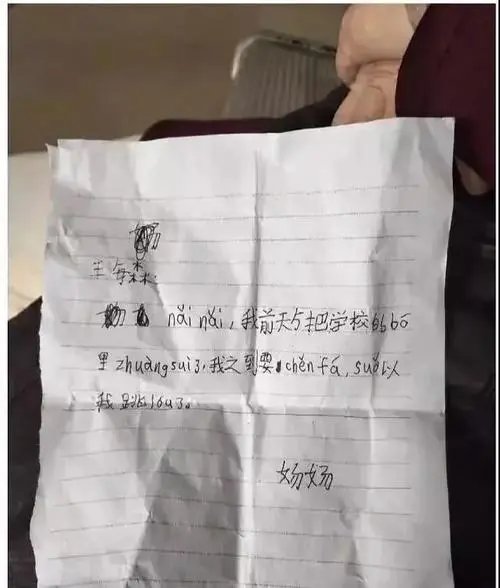 nǎi nǎi,我前天把学校的bō
里zhuàng suì了,我之到要chěn fá,suǒ以
我跳lóu了。